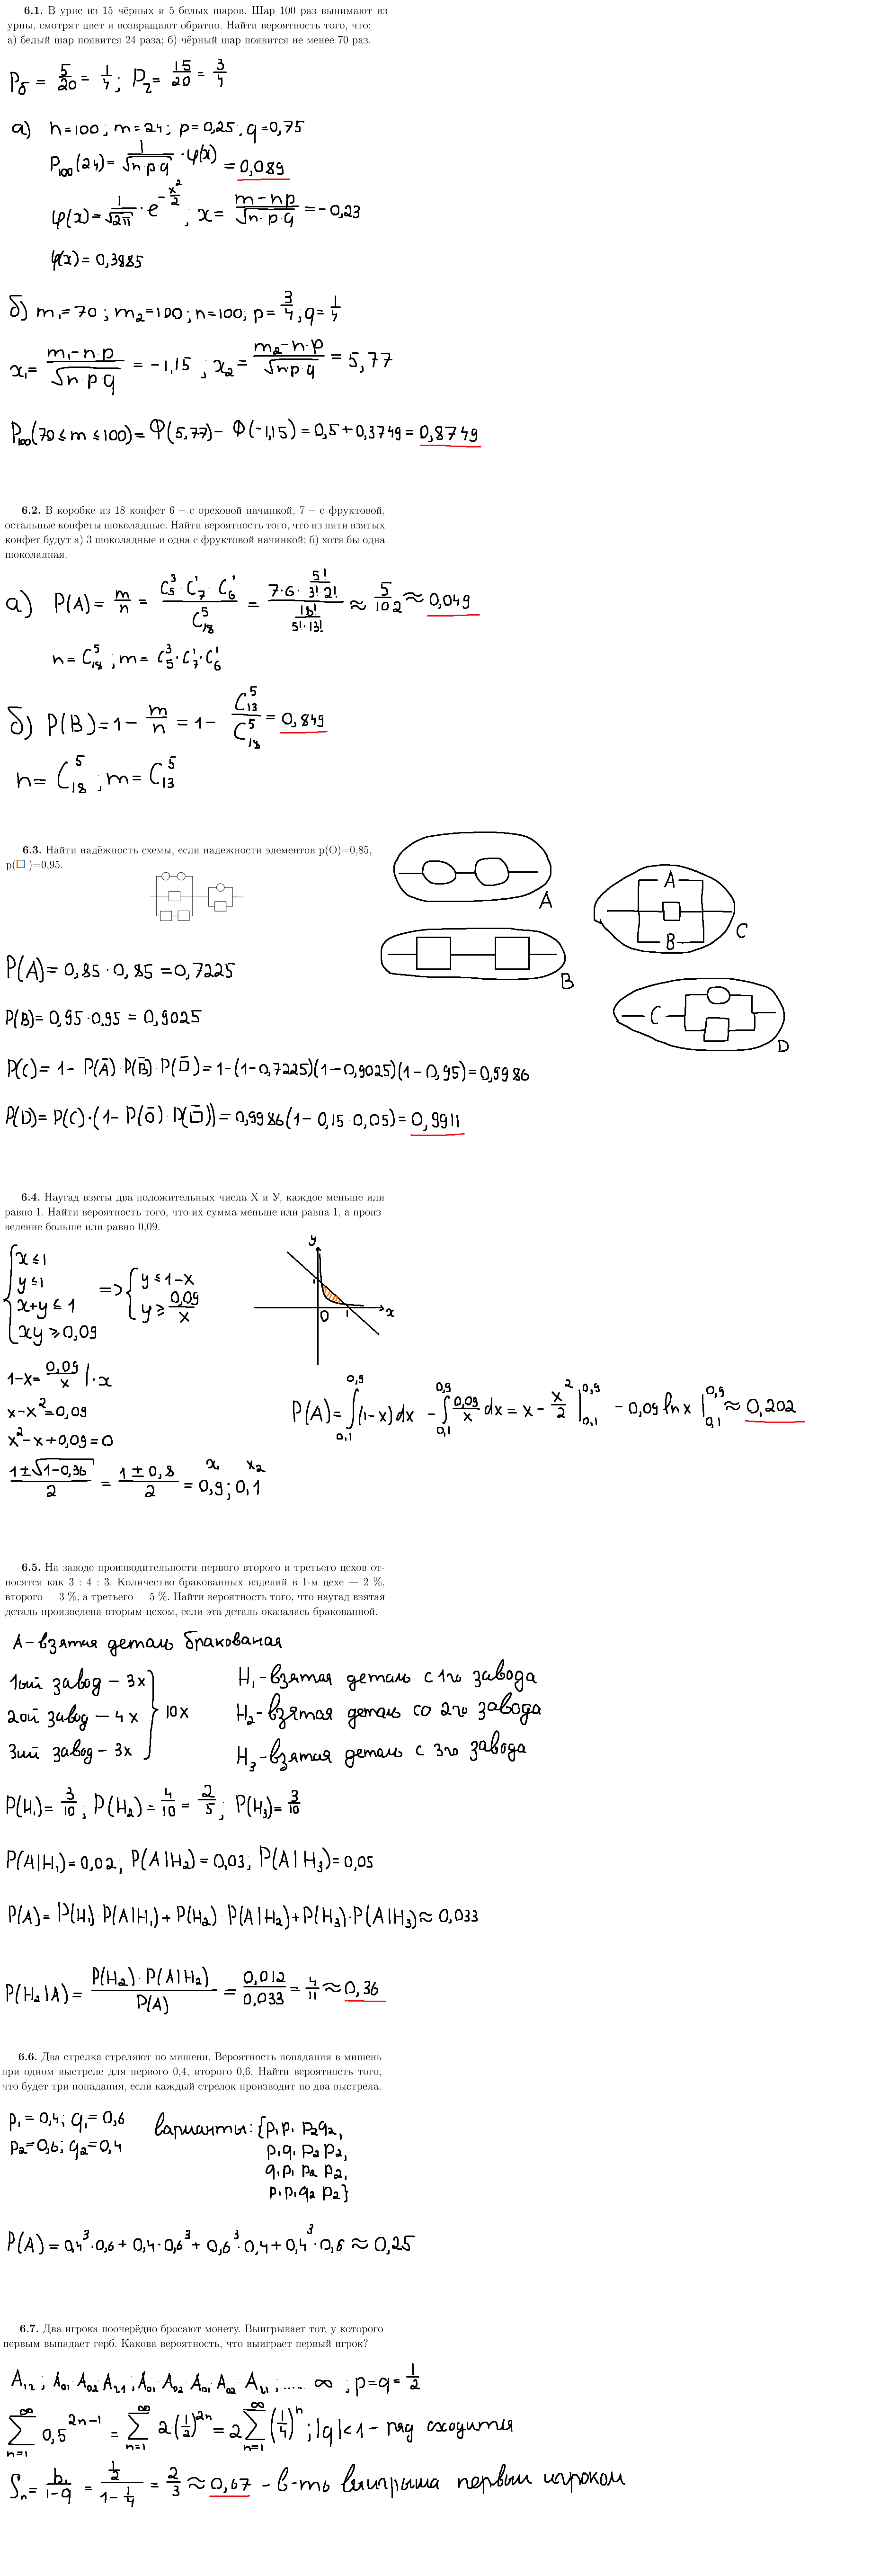 6.1. В урне из 15 чёрных и 5 белых шаров. Шар 100 раз вынимают из
урны, смотрят цвет и возвращают обратно. Найти вероятность того, что:
а) белый шар появится 24 раза; б) чёрный шар появится не менее 70 раз.
Pб = 5/20 = 1/4; Pч = 15/20 = 3/4
а) n=100; m=24; p=0,25; q=0,75
P₁₀₀(24) = 1/√(n·p·q) · φ(x) = 0,089
φ(x) = 1/√(2π) · e^(-x²/2); x = (m-np)/√(n·p·q) = -0,23
φ(x) = 0,3885
б) m₁=70; m₂=100; n=100; p=3/4; q=1/4
x₁ = (m₁-n·p)/√(n·p·q) = -1,15; x₂ = (m₂-n·p)/√(n·p·q) = 5,77
P₁₀₀(70≤m≤100) = Φ(5,77) - Φ(-1,15) = 0,5+0,3749 = 0,8749
6.2. В коробке из 18 конфет 6 – с ореховой начинкой, 7 – с фруктовой,
остальные конфеты шоколадные. Найти вероятность того, что из пяти взятых
конфет будут а) 3 шоколадные и одна с фруктовой начинкой; б) хотя бы одна
шоколадная.
а) P(A) = m/n = (C₅³·C₇¹·C₆¹)/C₁₈⁵ = (7·6·5!/(3!·2!))/(18!/(5!·13!)) ≈ 5/102 ≈ 0,049
n = C₁₈⁵; m = C₅³·C₇¹·C₆¹
б) P(B) = 1 - m/n = 1 - C₁₃⁵/C₁₈⁵ = 0,849
n = C₁₈⁵; m = C₁₃⁵
6.3. Найти надёжность схемы, если надежности элементов p(O)=0,85,
p(□)=0,95.
A
B
A
B
C
C
D
P(A) = 0,85·0,85 = 0,7225
P(B) = 0,95·0,95 = 0,9025
P(C) = 1 - P(A̅)·P(B̅)·P(□̅) = 1-(1-0,7225)(1-0,9025)(1-0,95) = 0,9986
P(D) = P(C)·(1 - P(O̅)·P(□̅)) = 0,9986(1-0,15·0,05) = 0,9911
6.4. Наугад взяты два положительных числа X и У, каждое меньше или
равно 1. Найти вероятность того, что их сумма меньше или равна 1, а произ-
ведение больше или равно 0,09.
{x≤1
y≤1
x+y≤1
xy≥0,09
=> {y≤1-x
y≥0,09/x
y
1
0
1
x
1-x = 0,09/x |·x
x-x²=0,09
x²-x+0,09=0
(1±√(1-0,36))/2 = (1±0,8)/2 = 0,9; 0,1
x x₂
P(A) = ∫₀,₁^0,9 (1-x)dx - ∫₀,₁^0,9 0,09/x dx = x - x²/2 |₀,₁^0,9 - 0,09 ln x |₀,₁^0,9 ≈ 0,202
6.5. На заводе производительности первого второго и третьего цехов от-
носятся как 3 : 4 : 3. Количество бракованных изделий в 1-м цехе — 2 %,
второго — 3 %, а третьего — 5 %. Найти вероятность того, что наугад взятая
деталь произведена вторым цехом, если эта деталь оказалась бракованной.
A - взятая деталь бракованая
1ый завод - 3x
2ой завод - 4x
3ий завод - 3x
} 10x
H₁ - взятая деталь с 1го завода
H₂ - взятая деталь со 2го завода
H₃ - взятая деталь с 3го завода
P(H₁) = 3/10; P(H₂) = 4/10 = 2/5; P(H₃) = 3/10
P(A|H₁) = 0,02; P(A|H₂) = 0,03; P(A|H₃) = 0,05
P(A) = P(H₁)·P(A|H₁) + P(H₂)·P(A|H₂) + P(H₃)·P(A|H₃) ≈ 0,033
P(H₂|A) = (P(H₂)·P(A|H₂))/P(A) = 0,012/0,033 = 4/11 ≈ 0,36
6.6. Два стрелка стреляют по мишени. Вероятность попадания в мишень
при одном выстреле для первого 0,4, второго 0,6. Найти вероятность того,
что будет три попадания, если каждый стрелок производит по два выстрела.
p₁ = 0,4; q₁ = 0,6
p₂ = 0,6; q₂ = 0,4
варианты: {p₁p₁ p₂q₂,
p₁q₁ p₂p₂,
q₁p₁ p₂p₂,
p₁p₁q₂p₂}
P(A) = 0,4³·0,6 + 0,4·0,6³ + 0,6³·0,4 + 0,4³·0,6 ≈ 0,25
6.7. Два игрока поочерёдно бросают монету. Выигрывает тот, у которого
первым выпадает герб. Какова вероятность, что выиграет первый игрок?
A₁₂; A₀₁·A₀₂·A₂₁; A₀₁·A₀₂·A₀₁·A₀₂·A₂₁; ..... ∞; p=q=1/2
∑ₙ₌₁^∞ 0,5^(2n-1) = ∑ₙ₌₁^∞ 2(1/2)^(2n) = 2∑ₙ₌₁^∞ (1/4)ⁿ; |q|<1 - ряд сходится
Sₙ = b₁/(1-q) = (1/2)/(1-1/4) = 2/3 ≈ 0,67 - в-ть выигрыша первым игроком